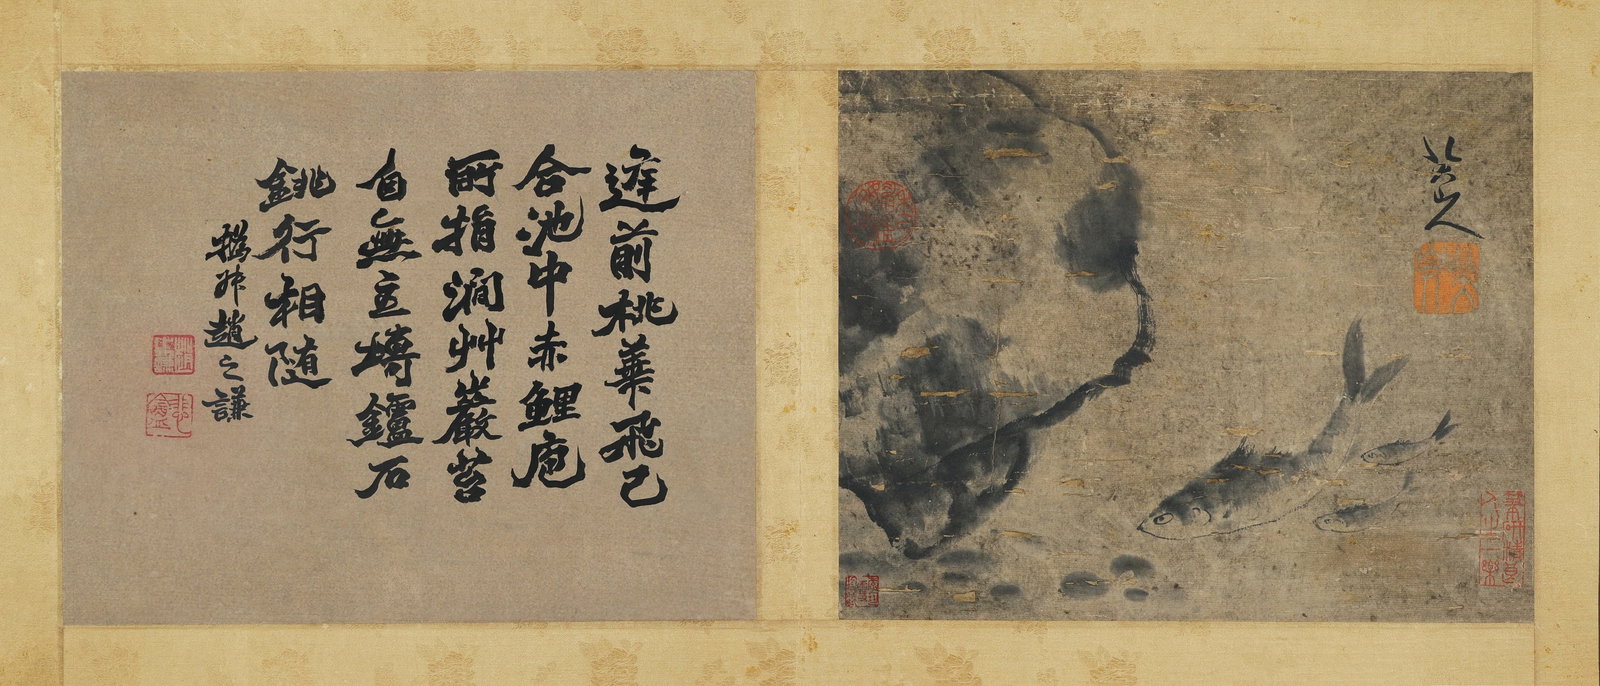 八大山人
庭前桃華飛已
合池中赤鯉庖
所捐澗艸巖苔
自無主塼鑪石
銚行相随
撝叔趙之謙